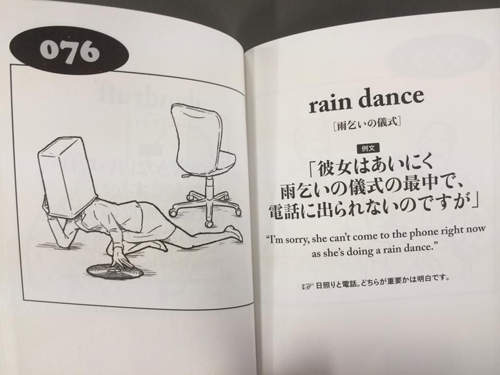 076
rain dance
［雨乞いの儀式］
例文
「彼女はあいにく
雨乞いの儀式の最中で、
電話に出られないのですが」
“I'm sorry, she can't come to the phone right now
as she's doing a rain dance.”
☞ 日照りと電話。どちらが重要かは明白です。